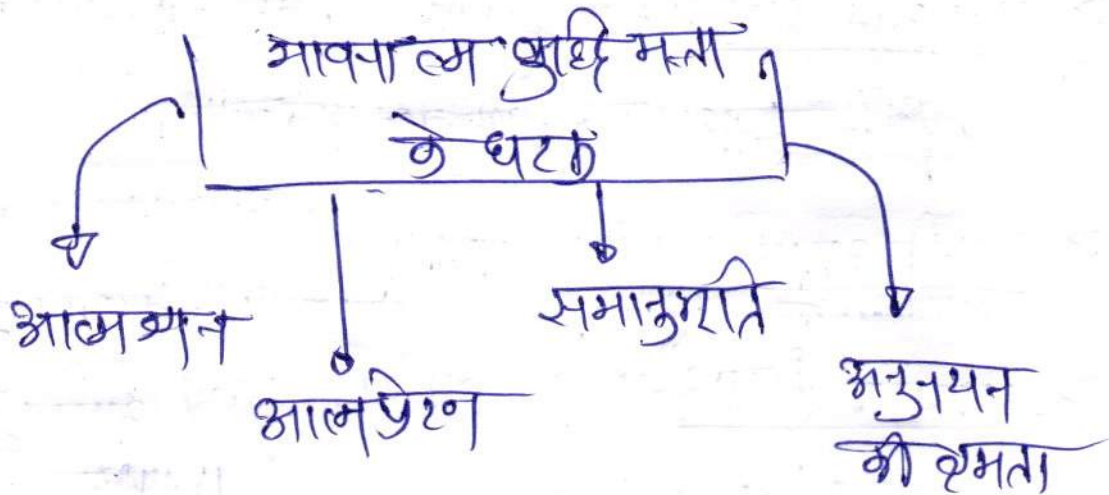 भावनात्म बुद्धिमत्ता
के घटक
आत्मज्ञान
आत्मप्रेरण
समानुभूति
अनुनयन
की क्षमता